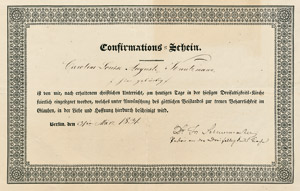 Confirmations-Schein.
Caroline Louise Auguste
ist von mir, nach erhaltenem christlichen Unterricht, am heutigen Tage in der hiesigen Dreifaltigkeits-Kirche
kirchlich eingesegnet worden, welches unter Anwünschung des göttlichen Beistandes zur treuen Beharrlichkeit im
Glauben, in der Liebe und Hoffnung hierdurch bescheinigt wird.
Berlin, den 1831